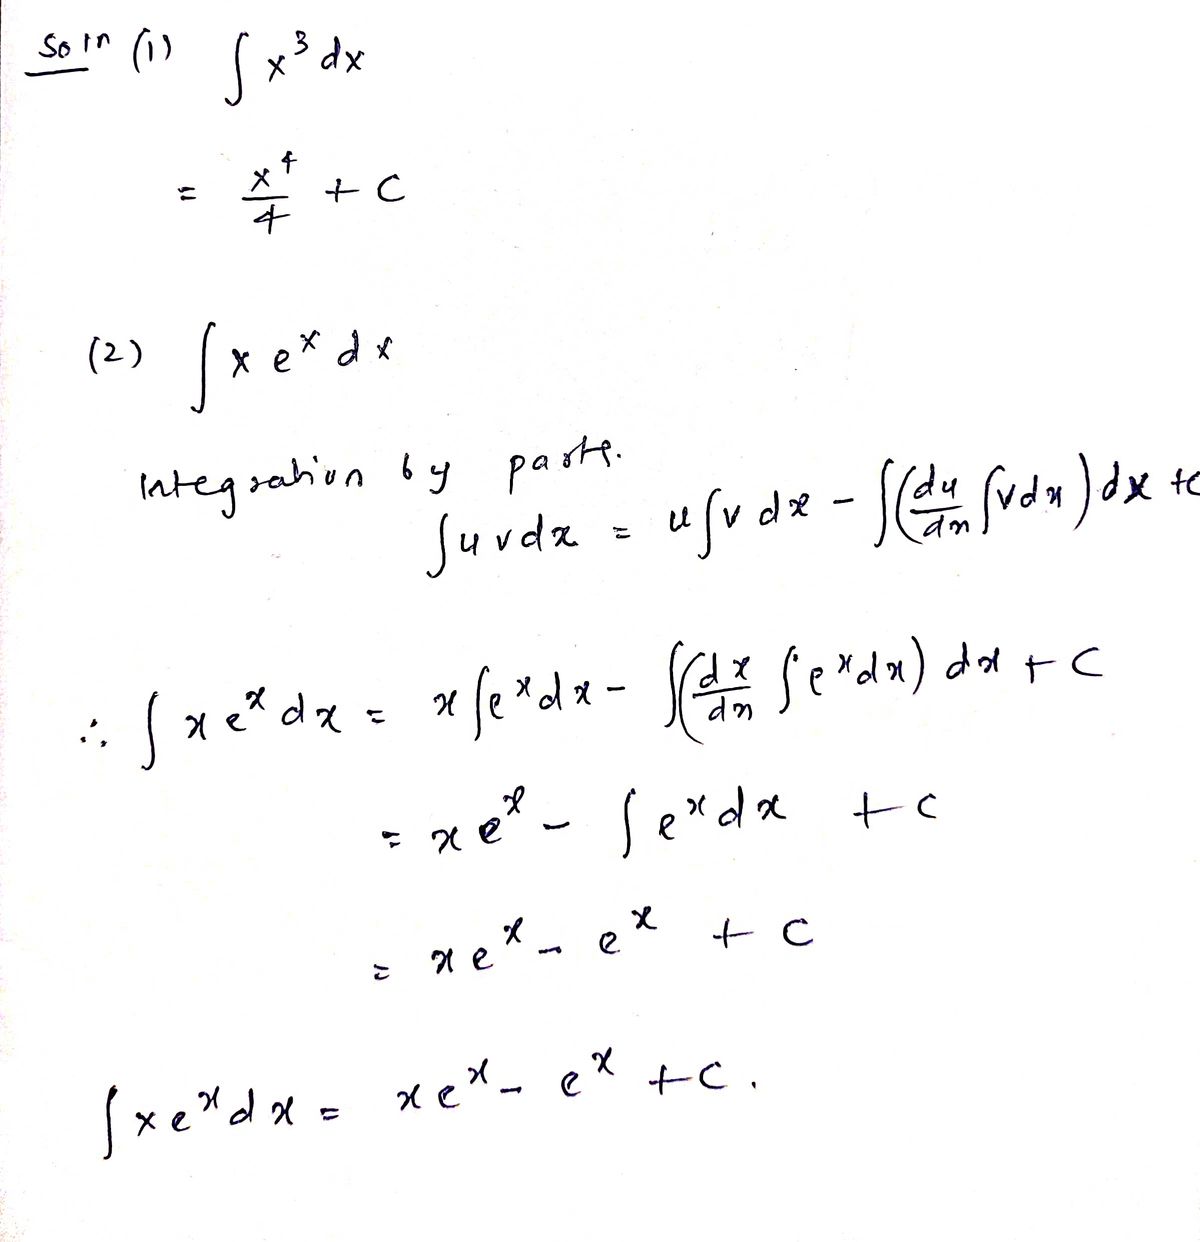 Soln (1) ∫ x³ dx
= x⁴/4 + C
(2) ∫ x eˣ dx
Integration by parts.
∫ u v dx = u ∫ v dx − ∫ (du/dx ∫ v dx) dx + c
∴ ∫ x eˣ dx = x ∫ eˣ dx − ∫ (dx/dx ∫ eˣ dx) dx + C
= x eˣ − ∫ eˣ dx + c
= x eˣ − eˣ + C
∫ x eˣ dx = x eˣ − eˣ + C.